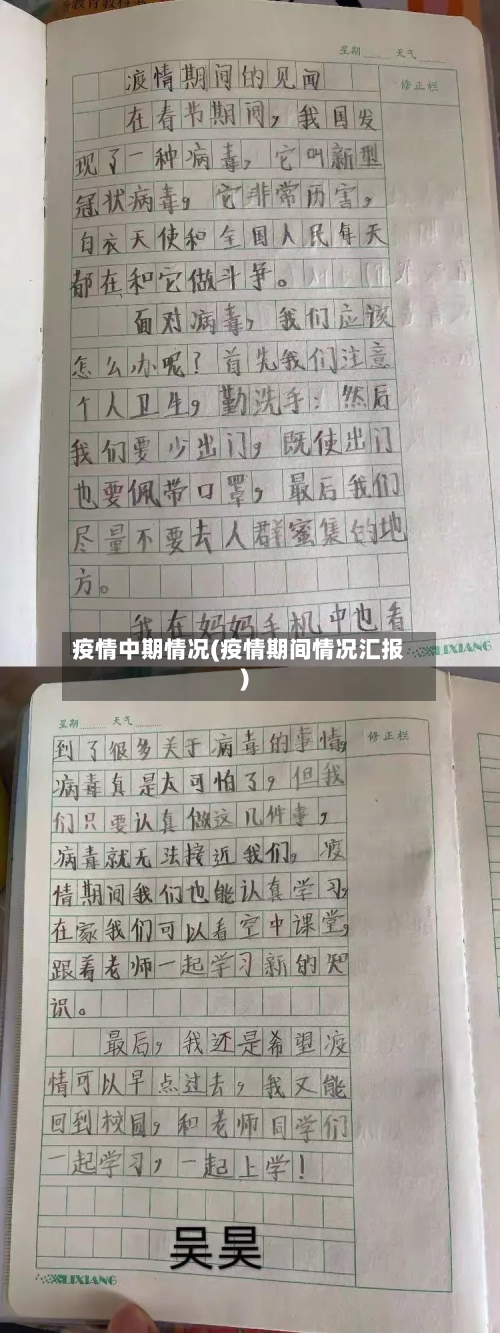 星期 天气
修正栏
疫情期间的见闻
在春节期间，我国发
现了一种病毒，它叫新型
冠状病毒，它非常历害，
白衣天使和全国人民每天
都在和它做斗争。
面对病毒，我们应该
怎么办呢？首先我们注意
个人卫生，勤洗手：然后
我们要少出门，既使出门
也要佩带口罩，最后我们
尽量不要去人群蜜集的地
方。
我在妈妈手机中也看
LIXIANG
疫情中期情况(疫情期间情况汇报
)
星期 天气
修正栏
到了很多关于病毒的事情，
病毒真是太可怕了，但我
们只要认真做这几件事，
病毒就无法接近我们，疫
情期间我们也能认真学习，
在家我们可以看空中课堂，
跟着老师一起学习新的知
识。
最后，我还是希望疫
情可以早点过去，我又能
回到校园，和老师同学们
一起学习，一起上学！
吴昊
LIXIANG